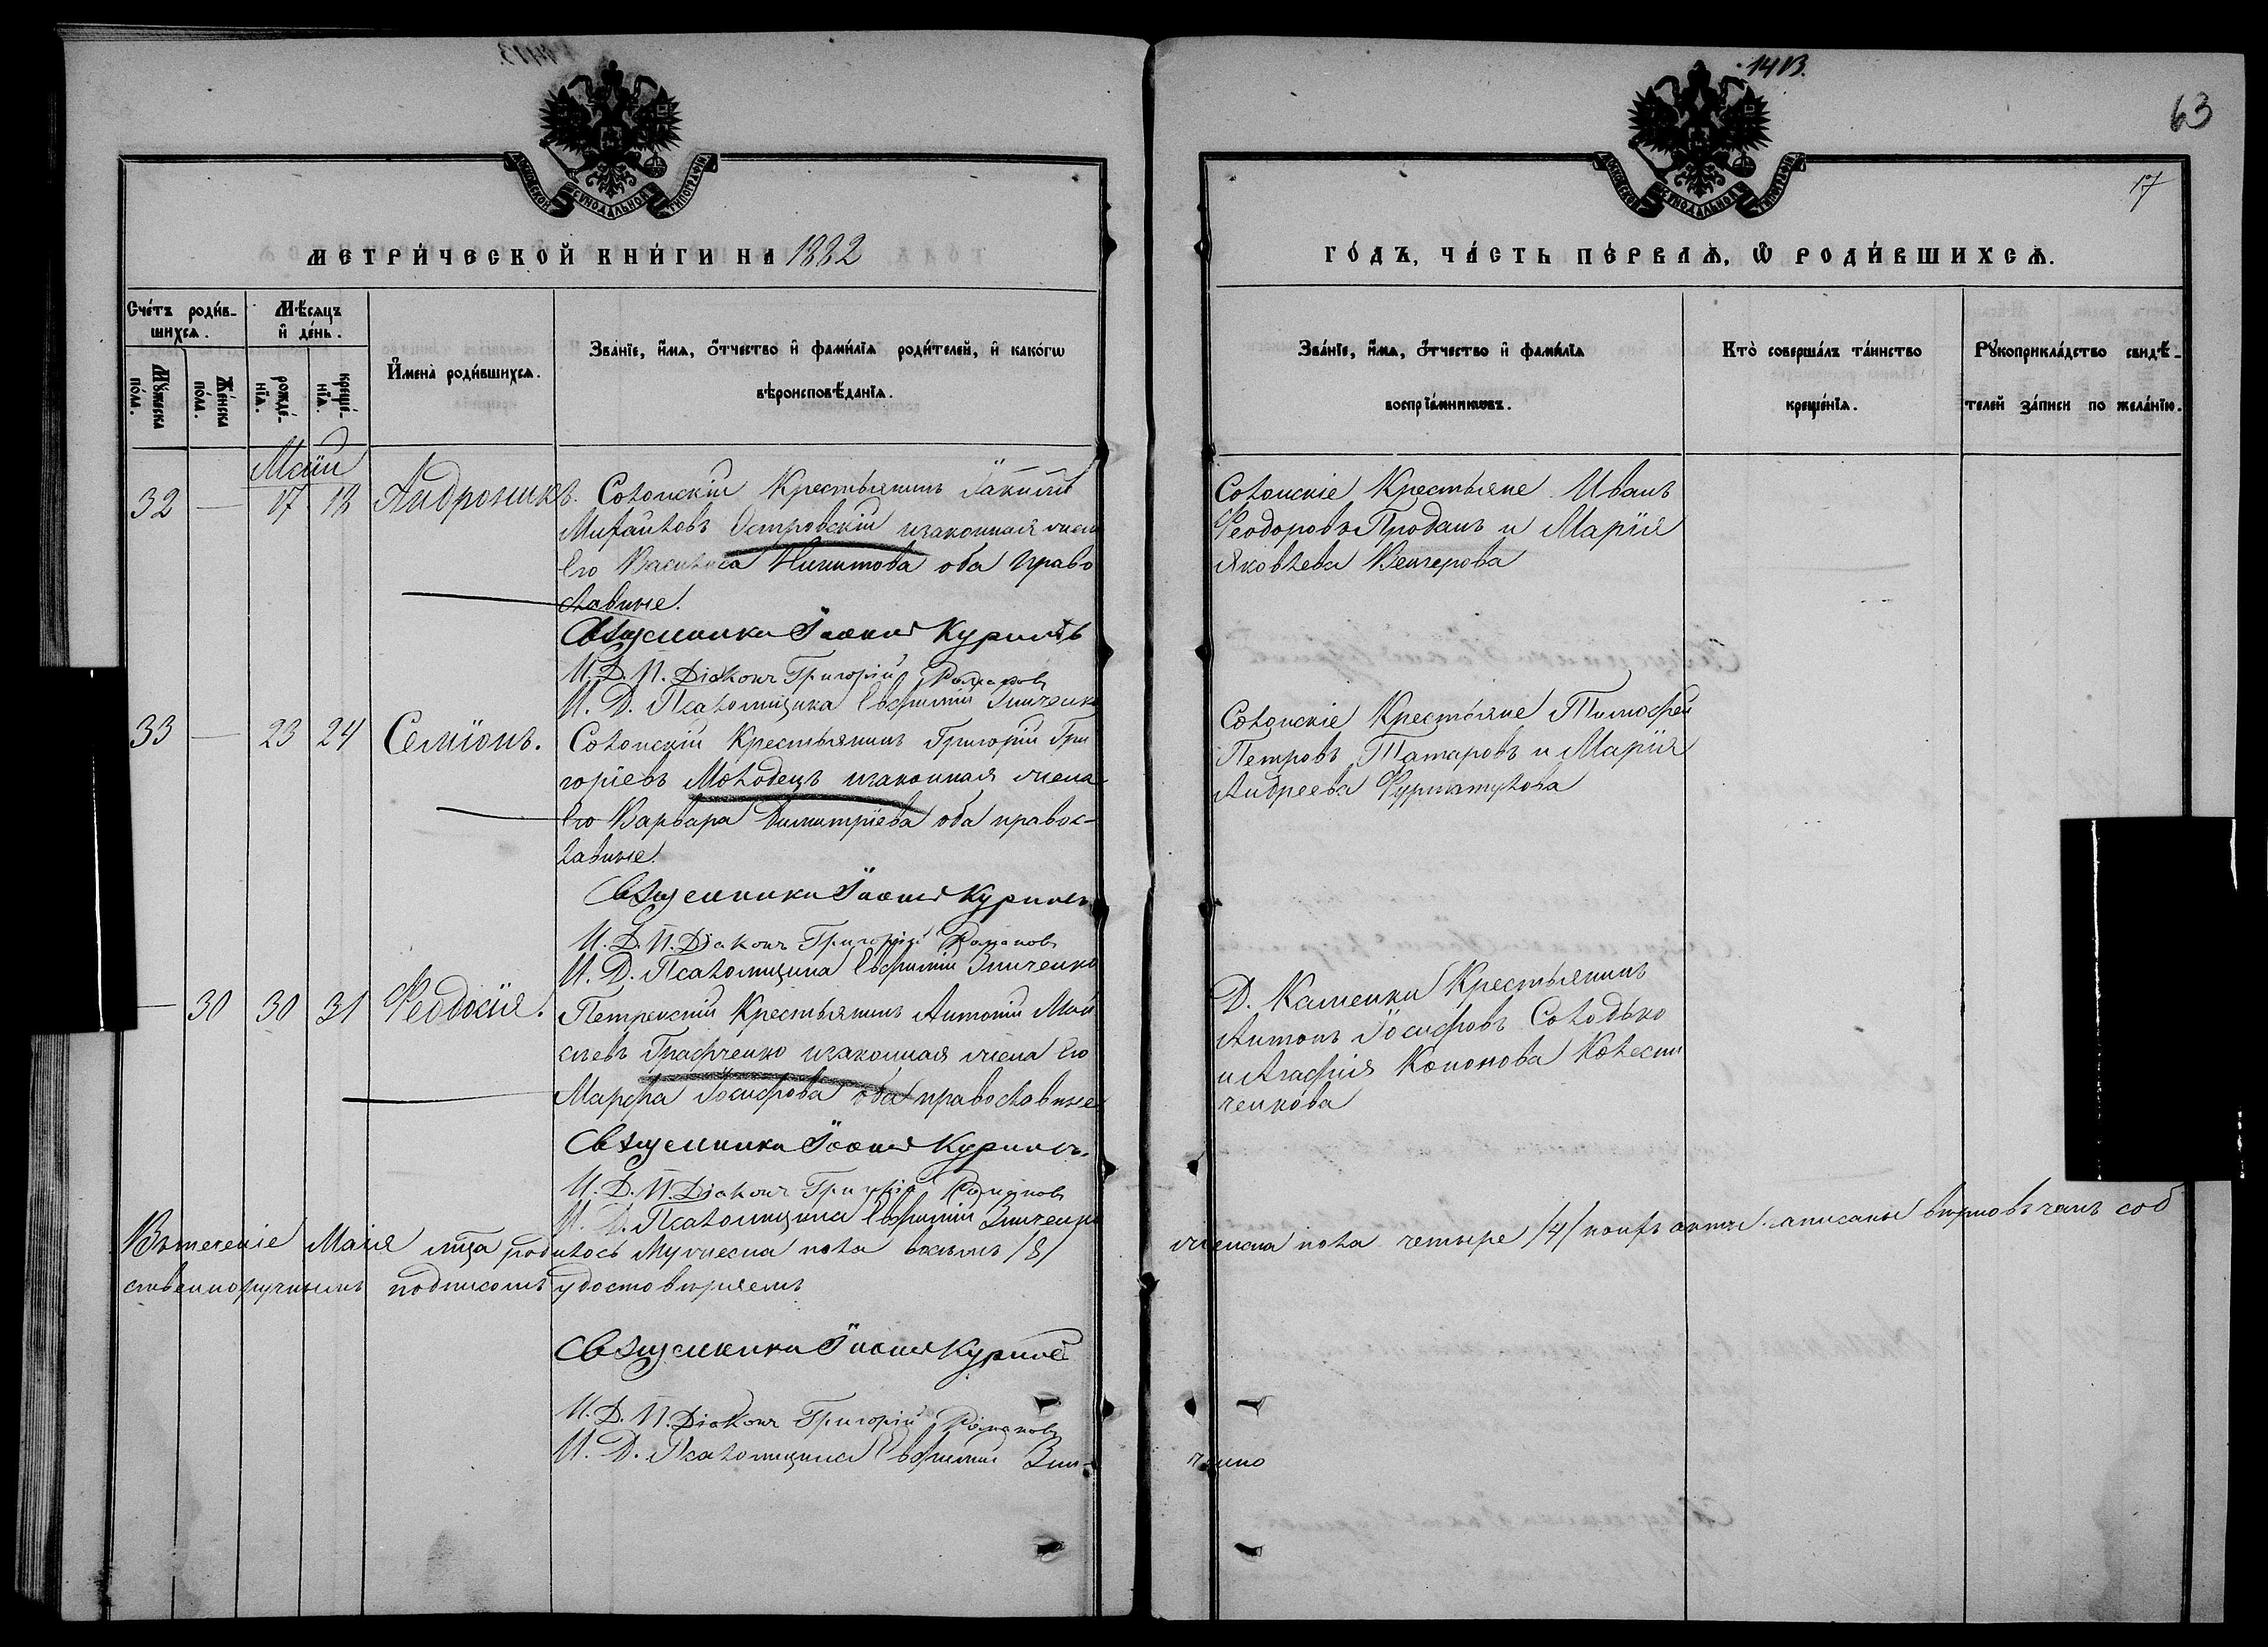 1413.
63
17
МОСКОВСКОЙ СѴНОДАЛЬНОЙ ТИПОГРАФІИ
МОСКОВСКОЙ СѴНОДАЛЬНОЙ ТИПОГРАФІИ
МЕТРИ́ЧЕСКОЙ КНИ́ГИ НА 1882
ГО́ДЪ, ЧА́СТЬ ПЕ́РВАѦ, Ѡ РОДИ́ВШИХСѦ.
Сче́тъ роди́в-
шихсѧ.
Мѣсѧцъ
и҆ де́нь.
Мꙋ́жеска
по́ла.
Же́нска
по́ла.
рожде́-
нїѧ.
креще́-
нїѧ.
И҆мена̀ роди́вшихсѧ.
Зва́нїе, и҆́мѧ, ѻ҆́тчество и҆ фами́лїѧ роди́телей, и҆ како́гѡ
вѣроисповѣ́данїѧ.
Зва́нїе, и҆́мѧ, ѻ҆́тчество и҆ фами́лїѧ
воспрїе́мниковъ.
Кто̀ соверша́лъ та́инство
креще́нїѧ.
Рꙋкоприкла́дство свидѣ́-
телей за́писи по жела́нїю.
Маій
32 — 17 18 Андроникъ. Солонскій Крестьянинъ Іакимъ
Михайловъ Островскій изаконная жена
Его Василиса Никитова оба право
славные.
Священникъ Іоаннъ Куриловъ
И. Д. П. Діаконъ Григорій Романовъ
И. Д. Псаломщика Евфимій Зинченко
Солонскіе Крестьяне Иванъ
Феодоровъ Проданъ и Марія
Яковлева Венгерова
33 — 23 24 Семіонъ. Солонскій Крестьянинъ Григорій Гри
горіевъ Молодецъ изаконная жена
Его Варвара Димитріева оба правос-
лавные.
Священникъ Іоаннъ Куриловъ
И. Д. П. Діаконъ Григорій Романовъ
И. Д. Псаломщика Евфимій Зинченко
Солонскіе Крестьяне Тимофей
Петровъ Татаровъ и Марія
Андреева
— 30 30 31 Феодосія. Петренскій Крестьянинъ Антоній Мои
сеевъ Графченко изаконная жена Его
Марфа Іосифова оба православные
Священникъ Іоаннъ Куриловъ.
И. Д. П. Діаконъ Григорій Романовъ
И. Д. Псаломщика Евфимій Зинченко
Д. Каменки Крестьянинъ
Антонъ Іосифовъ Солодько
и Агафія Кононова Колесни
ченкова
Втеченіе Маія м-ца родилось Мужеска пола восемь /8/ женска пола четыре /4/ акты записаны вѣрно въ чемъ соб
ственноручнымъ подписомъ удостовѣряемъ
Священникъ Іоаннъ Куриловъ
И. Д. П. Діаконъ Григорій Романовъ
И. Д. Псаломщика Евфимій Зин-
ченко